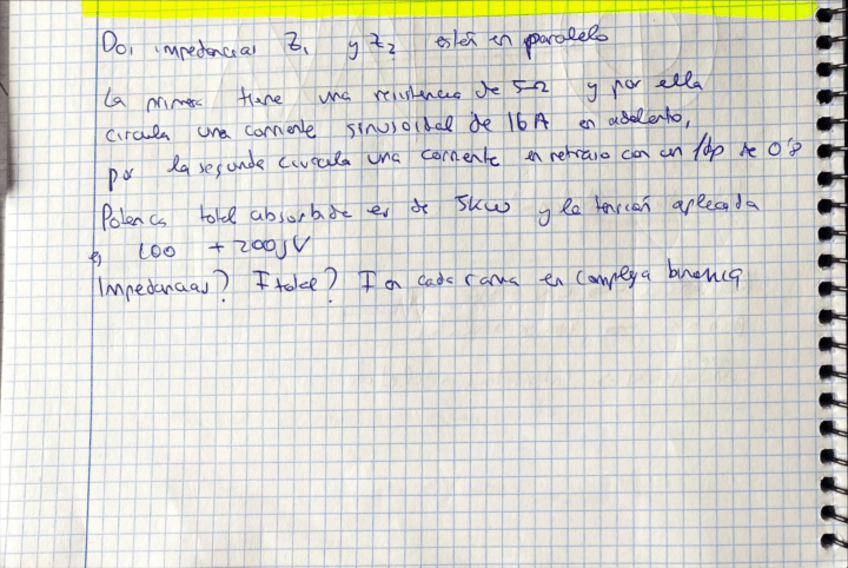 Dos impedancias Z1 y Z2 están en paralelo
La primera tiene una resistencia de 5Ω y por ella
circula una corriente sinusoidal de 16A en adelanto,
por la segunda circula una corriente en retraso con un fdp de 0'8
Potencia total absorbida es de 5kW y la tensión aplicada
es 100 + 200j V
Impedancias? I total? I en cada rama en compleja binómica